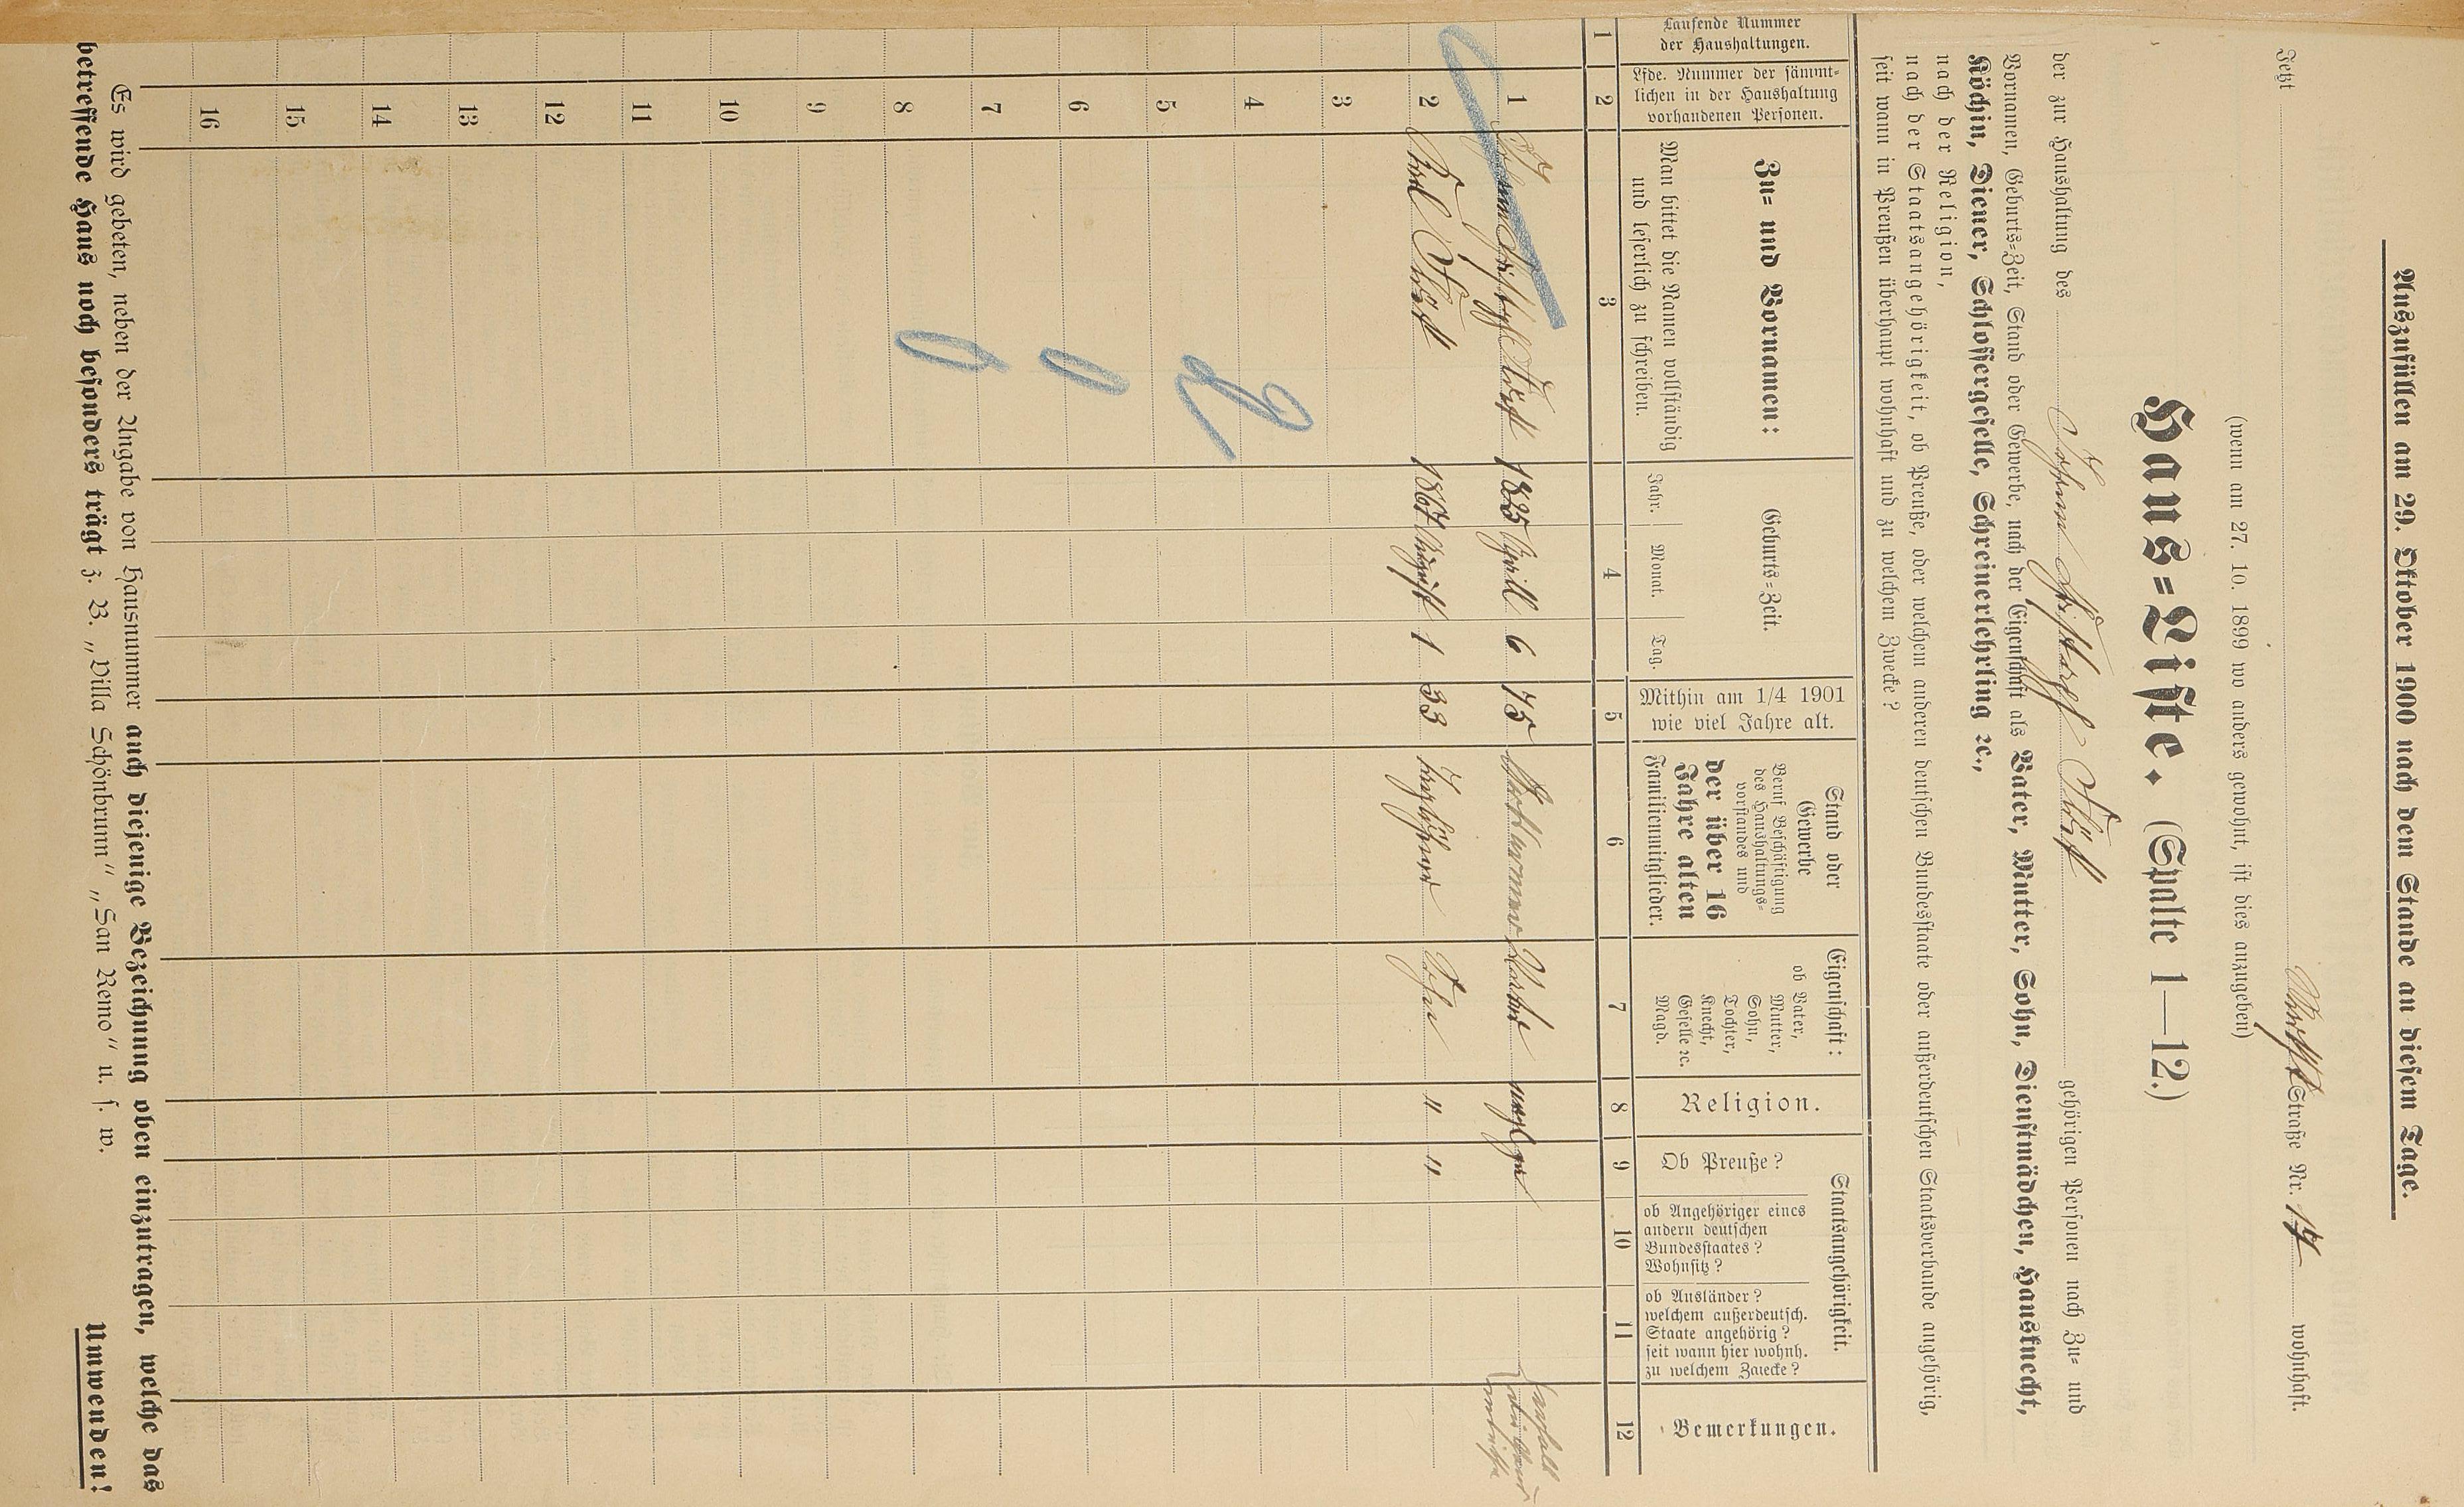 Auszufüllen am 29. Oktober 1900 nach dem Stande an diesem Tage.
Jetzt Straße Nr. 14 wohnhaft.
(wenn an 27. 10. 1899 wo anders gewohnt, ist dies anzugeben)
Haus-Liste. (Spalte 1—12.)
der zur Haushaltung des Johann gehörigen Personen nach Zu- und
Vornamen, Geburts-Zeit, Stand oder Gewerbe, nach der Eigenschaft als Vater, Mutter, Sohn, Dienstmädchen, Hausknecht,
Köchin, Diener, Schlossergeselle, Schreinerlehrling ꝛc.,
nach der Religion,
nach der Staatsangehörigkeit, ob Preuße, oder welchem anderen deutschen Bundesstaate oder außerdeutschen Staatsverbande angehörig,
seit wann in Preußen überhaupt wohnhaft und zu welchem Zwecke?
Laufende Nummer
der Haushaltungen.
Lfde. Nummer der sämmt-
lichen in der Haushaltung
vorhandenen Personen.
Zu- und Vornamen:
Man bittet die Namen vollständig
und leserlich zu schreiben.
Geburts-Zeit.
Jahr. Monat. Tag.
Mithin am 1/4 1901
wie viel Jahre alt.
Stand oder
Gewerbe
Beruf Beschäftigung
des Haushaltungs-
vorstandes und
der über 16
Jahre alten
Familienmitglieder.
Eigenschaft:
ob Vater,
Mutter,
Sohn,
Tochter,
Knecht,
Geselle ꝛc.
Magd.
Religion.
Staatsangehörigkeit.
Ob Preuße?
ob Angehöriger eines
andern deutschen
Bundesstaates?
Wohnsitz?
ob Ausländer?
welchem außerdeutsch.
Staate angehörig?
seit wann hier wohnh.
zu welchem Zwecke?
Bemerkungen.
1 2 3 4 5 6 7 8 9 10 11 12
1 Johann 1825 April 6 75 Vater evgl ja
2 Karl 1867 August 1 33 Taglöhner Sohn " "
3
4
5
6
7
8
9
10
11
12
13
14
15
16
2
0
0
Es wird gebeten, neben der Angabe von Hausnummer auch diejenige Bezeichnung oben einzutragen, welche das
betreffende Haus noch besonders trägt z. B. „Villa Schönbrunn" „San Remo" u. s. w.
Umwenden!